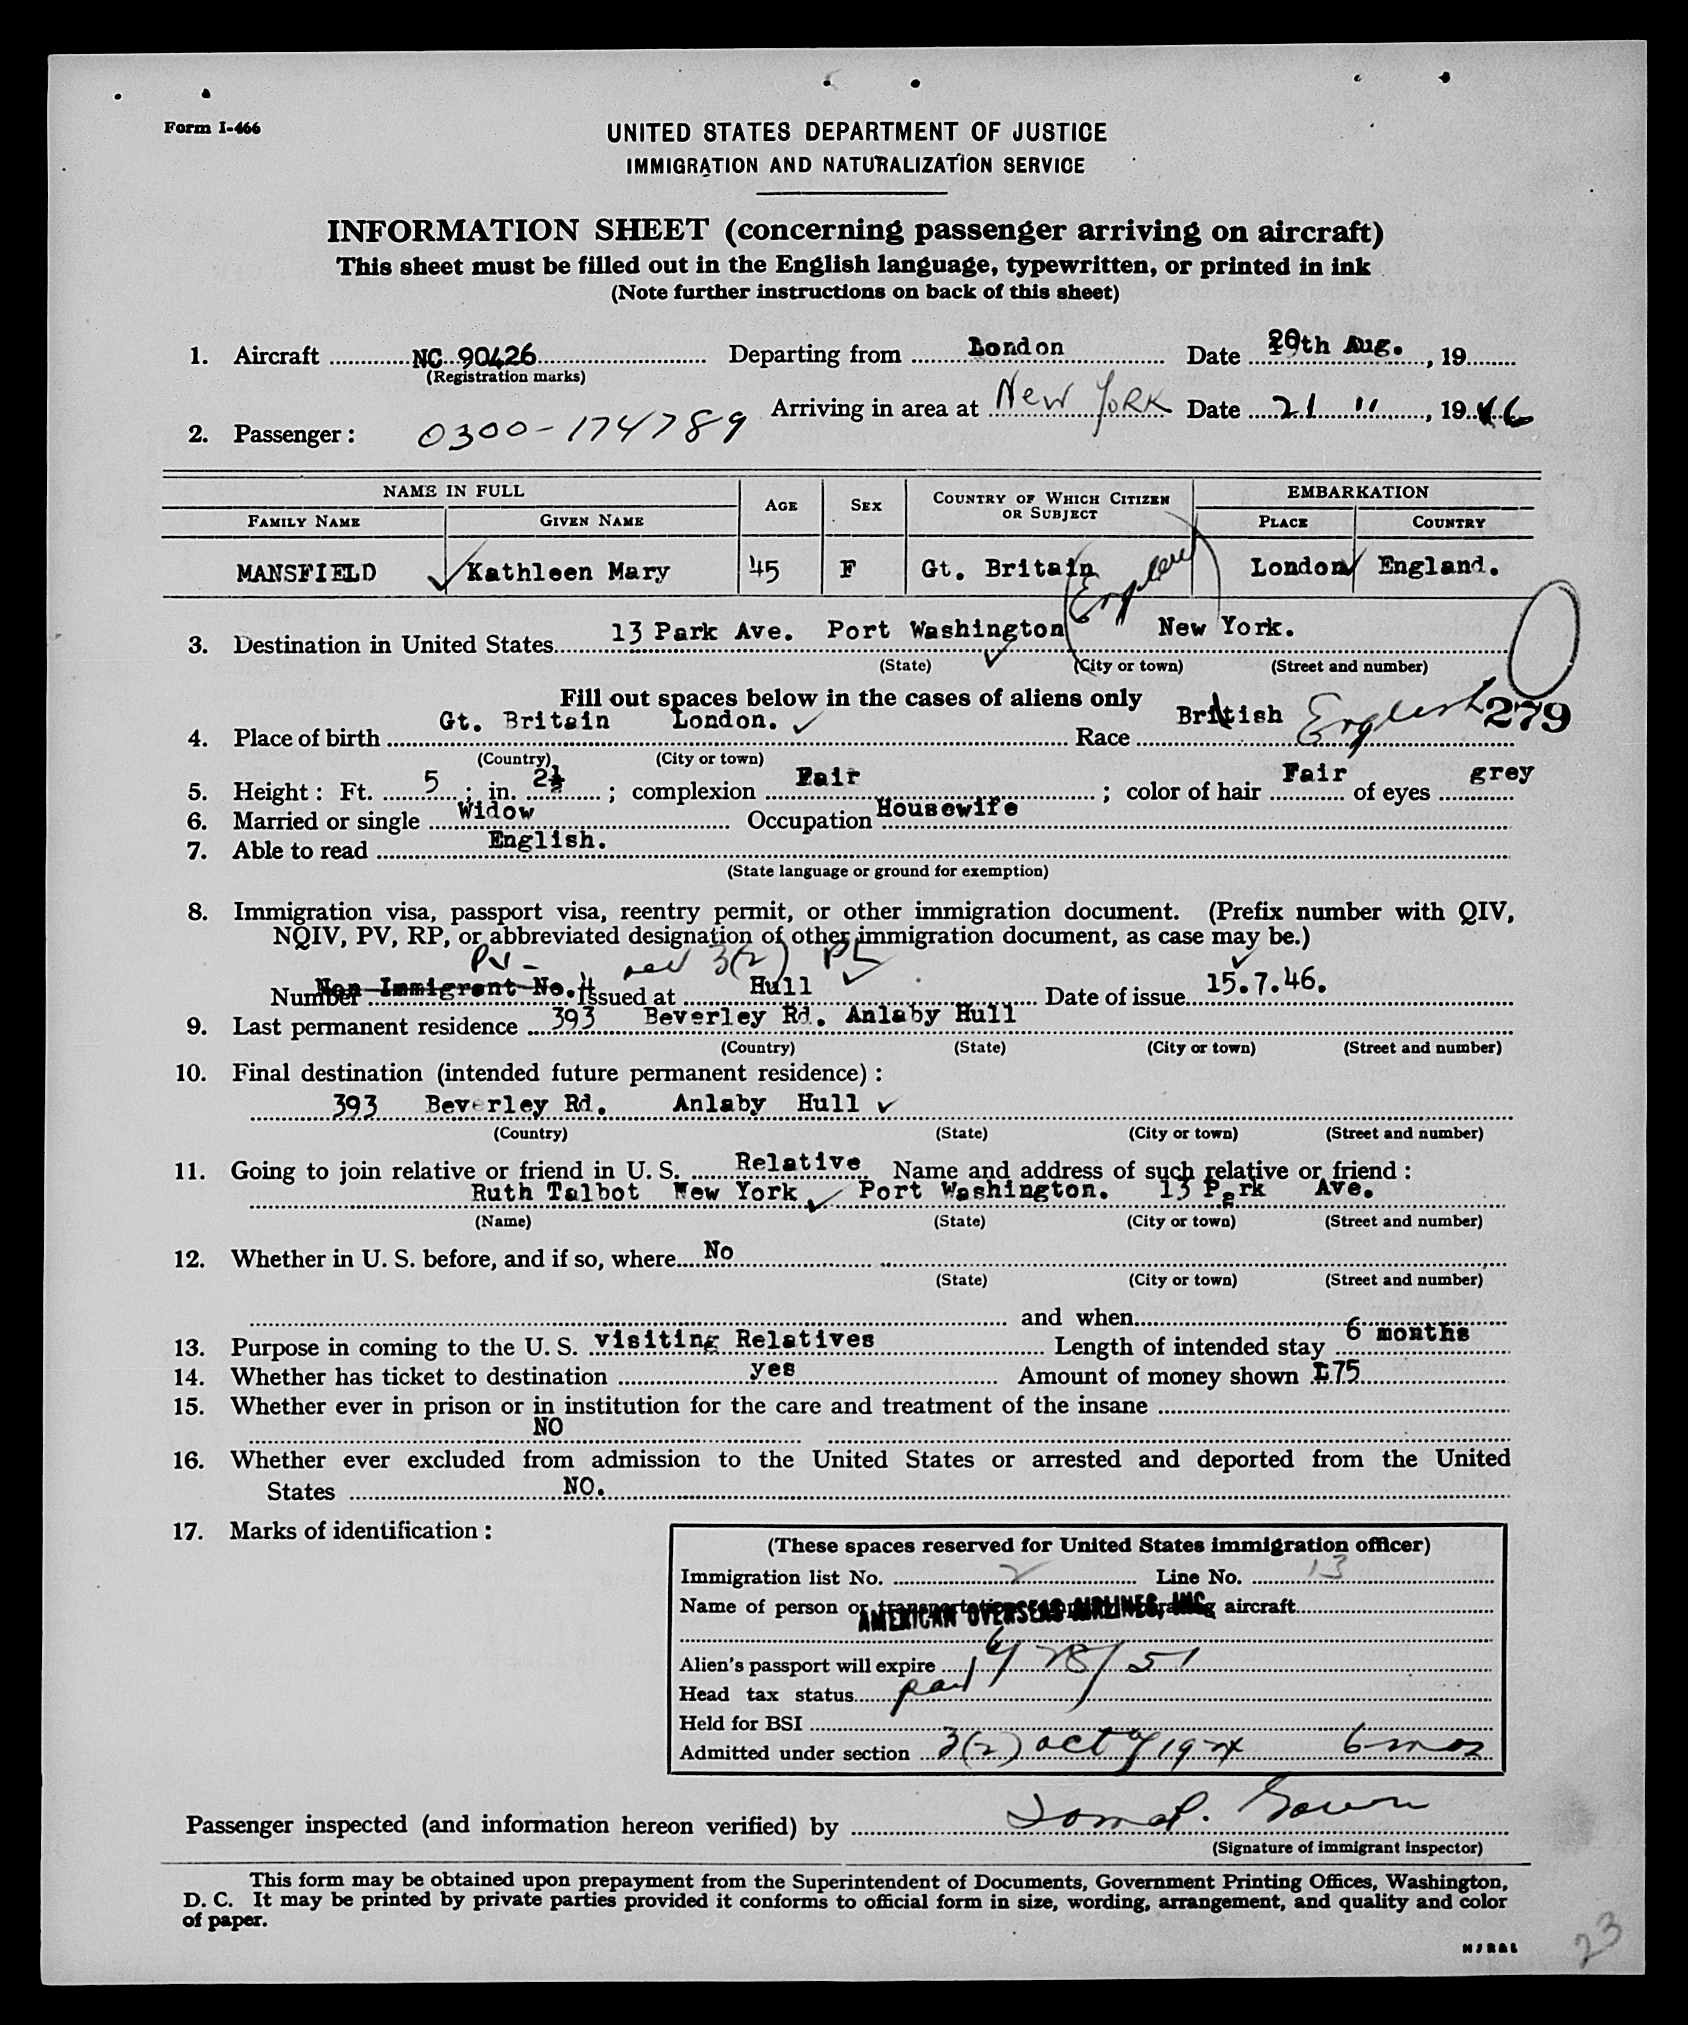 Form I-466
UNITED STATES DEPARTMENT OF JUSTICE
IMMIGRATION AND NATURALIZATION SERVICE
INFORMATION SHEET (concerning passenger arriving on aircraft)
This sheet must be filled out in the English language, typewritten, or printed in ink
(Note further instructions on back of this sheet)
1. Aircraft NC 90426 Departing from London Date 20th Aug. , 19
(Registration marks)
Arriving in area at New York Date 21 " , 1946
2. Passenger : 0300-174789
NAME IN FULL AGE SEX COUNTRY OF WHICH CITIZEN OR SUBJECT EMBARKATION
FAMILY NAME GIVEN NAME PLACE COUNTRY
MANSFIELD Kathleen Mary 45 F Gt. Britain London England.
3. Destination in United States 13 Park Ave. Port Washington New York.
(State) (City or town) (Street and number)
Fill out spaces below in the cases of aliens only
4. Place of birth Gt. Britain London. Race British English 279
(Country) (City or town)
5. Height : Ft. 5 ; in. 2½ ; complexion Fair ; color of hair Fair of eyes grey
6. Married or single Widow Occupation Housewife
7. Able to read English.
(State language or ground for exemption)
8. Immigration visa, passport visa, reentry permit, or other immigration document. (Prefix number with QIV,
NQIV, PV, RP, or abbreviated designation of other immigration document, as case may be.)
PV - 3(2)
Number Non Immigrant No. 4 Issued at Hull Date of issue 15.7.46.
9. Last permanent residence 393 Beverley Rd. Anlaby Hull
(Country) (State) (City or town) (Street and number)
10. Final destination (intended future permanent residence) :
393 Beverley Rd. Anlaby Hull
(Country) (State) (City or town) (Street and number)
11. Going to join relative or friend in U. S. Relative Name and address of such relative or friend :
Ruth Talbot New York Port Washington. 13 Park Ave.
(Name) (State) (City or town) (Street and number)
12. Whether in U. S. before, and if so, where No
(State) (City or town) (Street and number)
and when
13. Purpose in coming to the U. S. visiting Relatives Length of intended stay 6 months
14. Whether has ticket to destination yes Amount of money shown £75
15. Whether ever in prison or in institution for the care and treatment of the insane
NO
16. Whether ever excluded from admission to the United States or arrested and deported from the United
States NO.
17. Marks of identification :
(These spaces reserved for United States immigration officer)
Immigration list No. 2 Line No. 13
Name of person or transportation company operating aircraft
AMERICAN OVERSEAS AIRLINES, INC.
Alien's passport will expire 6/28/51
Head tax status paid
Held for BSI
Admitted under section 3(2) act of 1924 6 mos
Passenger inspected (and information hereon verified) by
(Signature of immigrant inspector)
This form may be obtained upon prepayment from the Superintendent of Documents, Government Printing Offices, Washington,
D. C. It may be printed by private parties provided it conforms to official form in size, wording, arrangement, and quality and color
of paper.
23